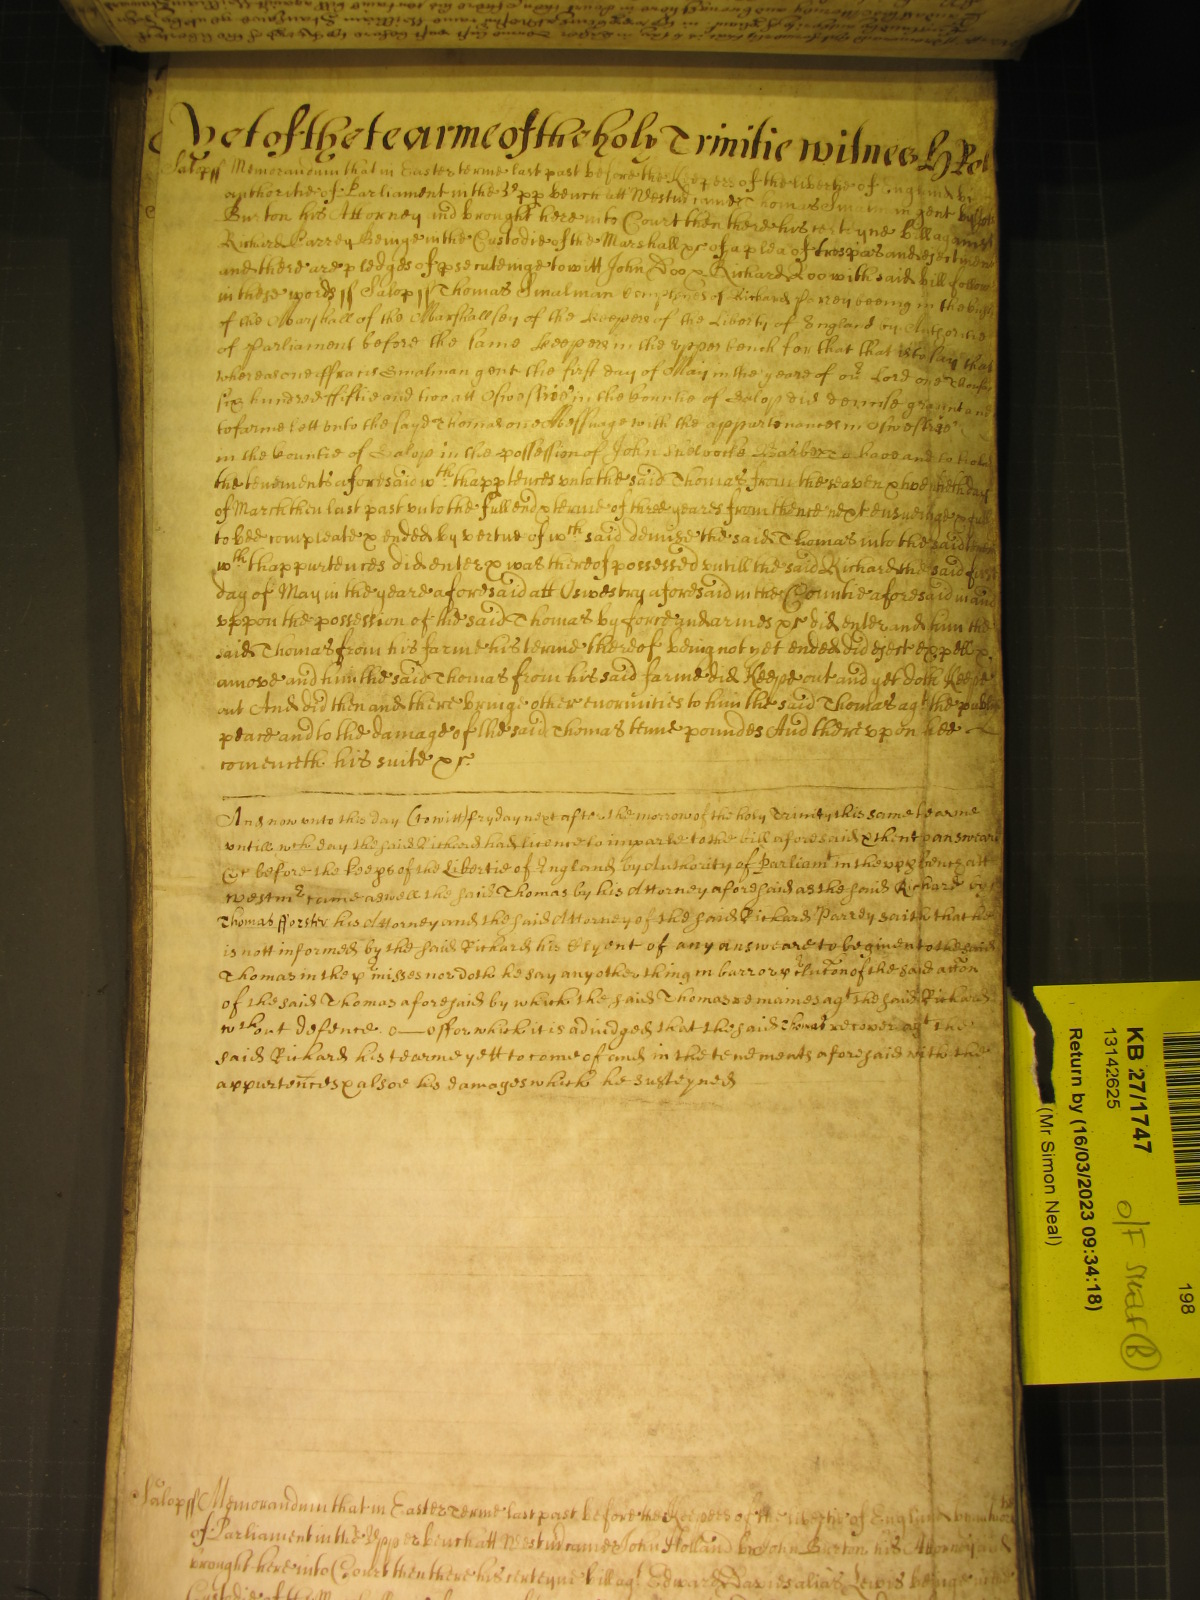 Yet of the tearme of the holy Trinitie witnes H Rol
Salop ss Memorandum that in Easter terme last past before the Keepers of the libertye of England by
authoritie of Parliament in the upp bench att Westm came Thomas Smalman gent by John
Burton his Attorney and brought here into Court then there his certeyne bill against
Richard Parrey Beinge in the Custodie of the Marshall xc of a plea of trespas and ejectment
and there are pledges of psecuteinge to witt John Doo x Richard Roo with said bill followes
in these words ss Salop ss Thomas Smalman complaines of Richard Parrey beeing in the
of the Marshall of the Marshallsey of the Keepers of the Liberty of England by Authoritie
of Parliament before the same Keepers in the upper bench for that that is to say that
whereas one ffrancis Smalman gent the first day of May in the yeare of our Lord one Thousand
six hundred fiftie and two att Oswestrie in the Countie of Salop did demise graunt and
to farme lett unto the sayd Thomas one Messuage with the appurtenances in Oswestrie
in the Countie of Salop in the possession of John Shelvocke Barber To have and to hold
the tenements aforesaid wth thapptences unto the said Thomas from the seaven x twentieth day
of March then last past unto the full end x terme of three yeares from thence next ensueinge x fully
to bee compleate x ended by vertue of wch said demise the said Thomas into the said
wth thappurtences did enter x was thereof possessed untill the said Richard the said first
day of May in the yeare aforesaid att Oswestry aforesaid in the Countie aforesaid in and
uppon the possession of the said Thomas by force and armes xc did enter and him the
said Thomas from his farme his terme thereof being not yet ended did eject expell x
amove and him the said Thomas from his said farme did Keepe out and yet doth Keepe
out And did then and there bringe other enormities to him the said Thomas agt the publiq
peace and to the damage of the said Thomas tenne poundes And thereupon hee
comenceth his suite xc
And now unto this day (to witt) fryday next after the morrow of the holy Trinity this same tearme
untill wch day the said Richard had licence to imparle to the bill aforesaid x then to answeare
xc before the keeps of the Libertie of England by Authority of Parliamt in the upp bench att
westmr came aswell the said Thomas by his Attorney aforesaid as the said Richard by
Thomas fforster his Attorney and the said Attorney of the said Rickard Parrey saith that he
is nott informed by the said Rickard his Clyent of any answeare to be given to the said
Thomas in the pmisses nor doth he say any other thing in barr or pclucon of the said accon
of the said Thomas aforesaid by which the said Thomas remaines agt the said Rickard
wthout defence. ffor which it is adiudged that the said Thomas recover agt the
said Rickard his tearme yett to come of and in the tenements aforesaid with the
appurtences x alsoe his damages which he susteyned
Salop ss Memorandum that in Easter Terme last past before the Keepers of the libertie of England by authori
of Parliament in the Upper bench att Westm came John Holland by John Burton his Attorney and
brought here into Court then there his certeyne bill agt Edward Davies alias Lewis beinge in the
Custodie of the
KB 27/1747
13142625
Return by (16/03/2023 09:34:18)
(Mr Simon Neal)
198